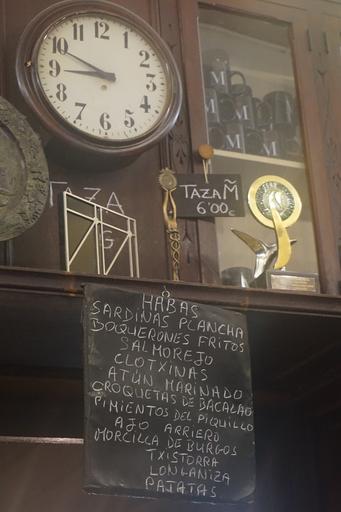 12
1
2
3
4
5
6
7
8
9
10
11
M
M
M
M
M
TAZA M̃
6'00€
TAZA
G
HABAS
SARDINAS PLANCHA
BOQUERONES FRITOS
SALMOREJO
CLOTXINAS
ATÚN MARINADO
CROQUETAS DE BACALAO
PIMIENTOS DEL PIQUILLO
AJO ARRIERO
MORCILLA DE BURGOS
TXISTORRA
LONGANIZA
PATATAS